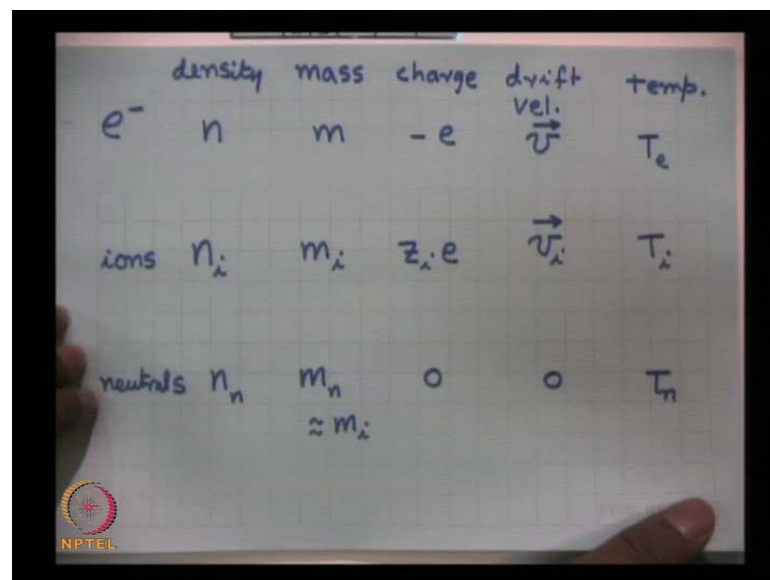 density mass charge drift vel. temp.
e⁻ n m - e v⃗ Tₑ
ions nᵢ mᵢ zᵢe v⃗ᵢ Tᵢ
neutrals nₙ mₙ 0 0 Tₙ
≈ mᵢ
NPTEL